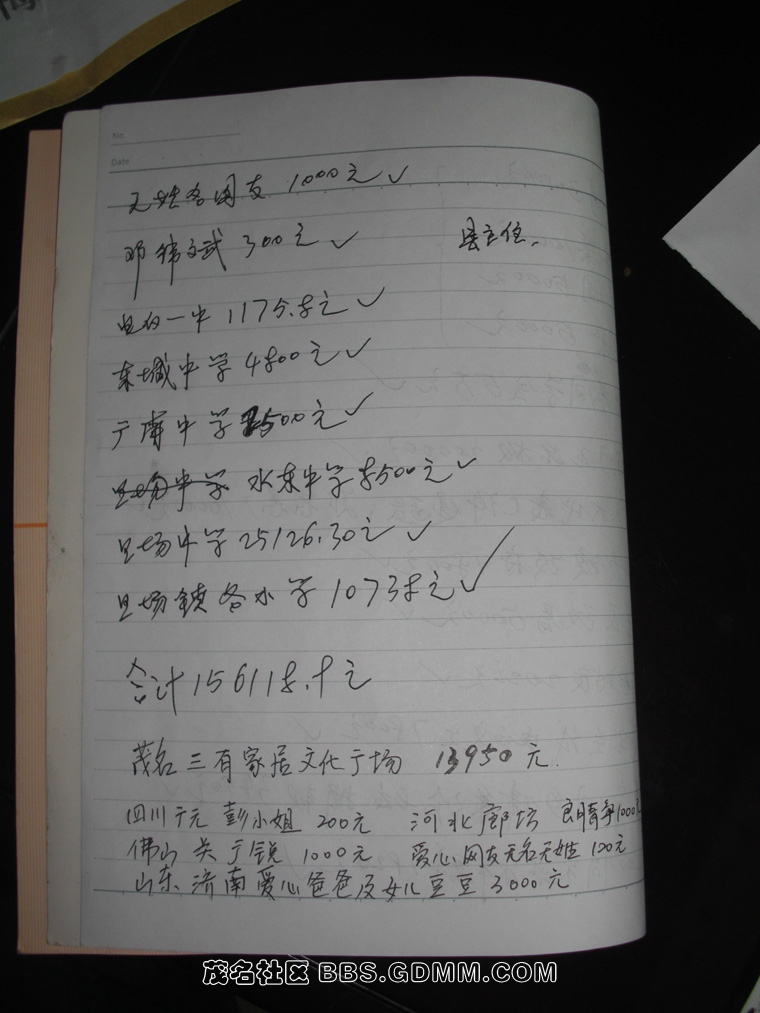 No.
Date
无姓名网友 1000元 ✓
邓伟文武 300元 ✓ 县主任.
电白一中 1175.8元 ✓
东城中学 4800元 ✓
于庸中学 500元 ✓
旦场中学 水东中学 8500元 ✓
旦场中学 25126.30元 ✓
旦场镇各小学 10738元 ✓
合计 156118.9元
茂名三有家居文化广场 13950元.
四川广元 彭小姐 200元 河北廊坊 1000元
佛山 关于锐 1000元 爱心网友无名无姓 100元
山东济南爱心爸爸及女儿豆豆 3000元
茂名社区 BBS.GDMM.COM